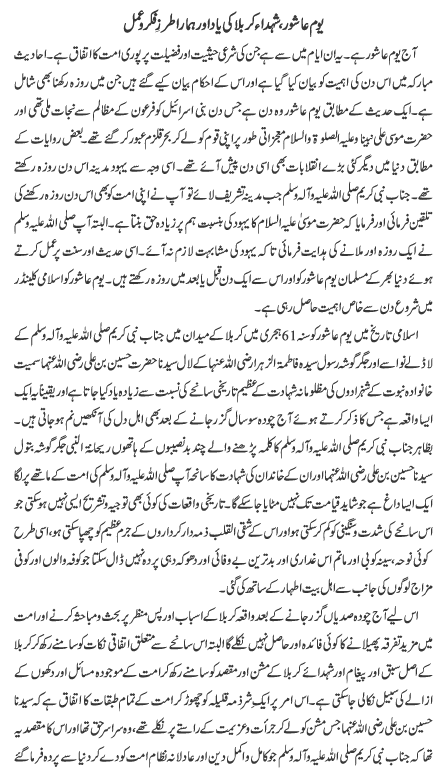 یوم عاشور، شہداء کربلا کی یاد اور ہمارا طرز فکر و عمل
آج یوم عاشور ہے۔ یہ ان ایام میں سے ہے جن کی شرعی حیثیت اور فضیلت پر پوری امت کا اتفاق ہے۔ احادیث
مبارکہ میں اس دن کی اہمیت کو بیان کیا گیا ہے اور اس کے احکام بیان کیے گئے ہیں جن میں روزہ رکھنا بھی شامل
ہے۔ ایک حدیث کے مطابق یوم عاشور وہ ہے جس دن بنی اسرائیل کو فرعون کے مظالم سے نجات ملی تھی اور
حضرت موسیٰ علیٰ نبینا و علیہ الصلوۃ والسلام معجزاتی طور پر اپنی قوم کو لے کر بحر قلزم عبور کر گئے تھے۔ بعض روایات کے
مطابق دنیا میں دیگر کئی بڑے انقلابات بھی اسی دن پیش آئے تھے۔ اسی وجہ سے یہود مدینہ اس دن روزہ رکھتے
تھے۔ جناب نبی کریم صلی اللہ علیہ وآلہ وسلم جب مدینہ تشریف لائے تو آپ نے اپنی امت کو بھی اس دن روزہ رکھنے کی
تلقین فرمائی اور فرمایا کہ حضرت موسیٰ علیہ السلام کا یہود کی بنسبت ہم پر زیادہ حق بنتا ہے۔ البتہ آپ صلی اللہ علیہ وسلم
نے ایک روزہ اور ملانے کی ہدایت فرمائی تا کہ یہود کی مشابہت لازم نہ آئے۔ اسی حدیث اور سنت پر عمل کرتے
ہوئے دنیا بھر کے مسلمان یوم عاشور کو اور اس سے ایک دن قبل یا بعد میں روزہ رکھتے ہیں۔ یوم عاشور کو اسلامی کلینڈر
میں شروع دن سے خاص اہمیت حاصل رہی ہے۔
اسلامی تاریخ میں یوم عاشور کو سنہ 61 ہجری میں کربلا کے میدان میں جناب نبی کریم صلی اللہ علیہ وآلہ وسلم کے
لاڈلے نواسے اور جگر گوشہ رسول سیدہ فاطمۃ الزہرا رضی اللہ عنہا کے لال سیدنا حضرت حسین بن علی رضی اللہ عنہما سمیت
خانوادہ نبوت کے شہزادوں کی مظلومانہ شہادت کے عظیم تاریخی سانحے کی نسبت سے زیادہ یاد کیا جاتا ہے اور یقیناً یہ ایک
ایسا واقعہ ہے جس کا ذکر کرتے ہوئے آج چودہ سو سال گزر جانے کے بعد بھی اہل دل کی آنکھیں نم ہو جاتی ہیں۔
بظاہر جناب نبی کریم صلی اللہ علیہ وآلہ وسلم کا کلمہ پڑھنے والے چند بدنصیبوں کے ہاتھوں ریحانۃ النبی جگر گوشہ بتول
سیدنا حسین بن علی رضی اللہ عنہما اور ان کے خاندان کی شہادت کا سانحہ آپ صلی اللہ علیہ وآلہ وسلم کی امت کے ماتھے پر لگا
ایک ایسا داغ ہے جو شاید قیامت تک نہیں مٹایا جا سکے گا۔ تاریخی واقعات کی کوئی بھی توجیہ و تشریح ایسی نہیں ہو سکتی جو
اس سانحے کی شدت و سنگینی کو کم کر سکتی ہو اور اس کے شقی القلب ذمہ دار کرداروں کے جرم عظیم کو چھپا سکتی ہو، اسی طرح
کوئی نوحہ، سینہ کوبی اور ماتم اس غداری اور بدترین بے وفائی اور دھوکہ دہی پر پردہ نہیں ڈال سکتا جو کوفہ والوں اور کوفی
مزاج لوگوں کی جانب سے اہل بیت اطہار کے ساتھ کی گئی۔
اس لیے آج چودہ صدیاں گزر جانے کے بعد واقعہ کربلا کے اسباب اور پس منظر پر بحث و مباحثہ کرنے اور امت
میں مزید تفرقہ پھیلانے کا کوئی فائدہ اور حاصل نہیں نکلے گا البتہ اس سانحے سے متعلق اتفاقی نکات کو سامنے رکھ کر کربلا
کے اصل سبق اور پیغام اور شہدائے کربلا کے مشن اور مقصد کو سامنے رکھ کر امت کے موجودہ مسائل اور دکھوں کے
ازالے کی سبیل نکالی جا سکتی ہے۔ اس امر پر ایک شرذمہ قلیلہ کو چھوڑ کر امت کے تمام طبقات کا اتفاق ہے کہ سیدنا
حسین بن علی رضی اللہ عنہما جس مشن کو لے کر جرأت و عزیمت کے راستے پر نکلے تھے، وہ سراسر حق تھا اور اس کا مقصد یہ
تھا کہ جناب نبی کریم صلی اللہ علیہ وآلہ وسلم جو کامل و اکمل دین اور عادلانہ نظام امت کو دے کر دنیا سے پردہ فرما گئے